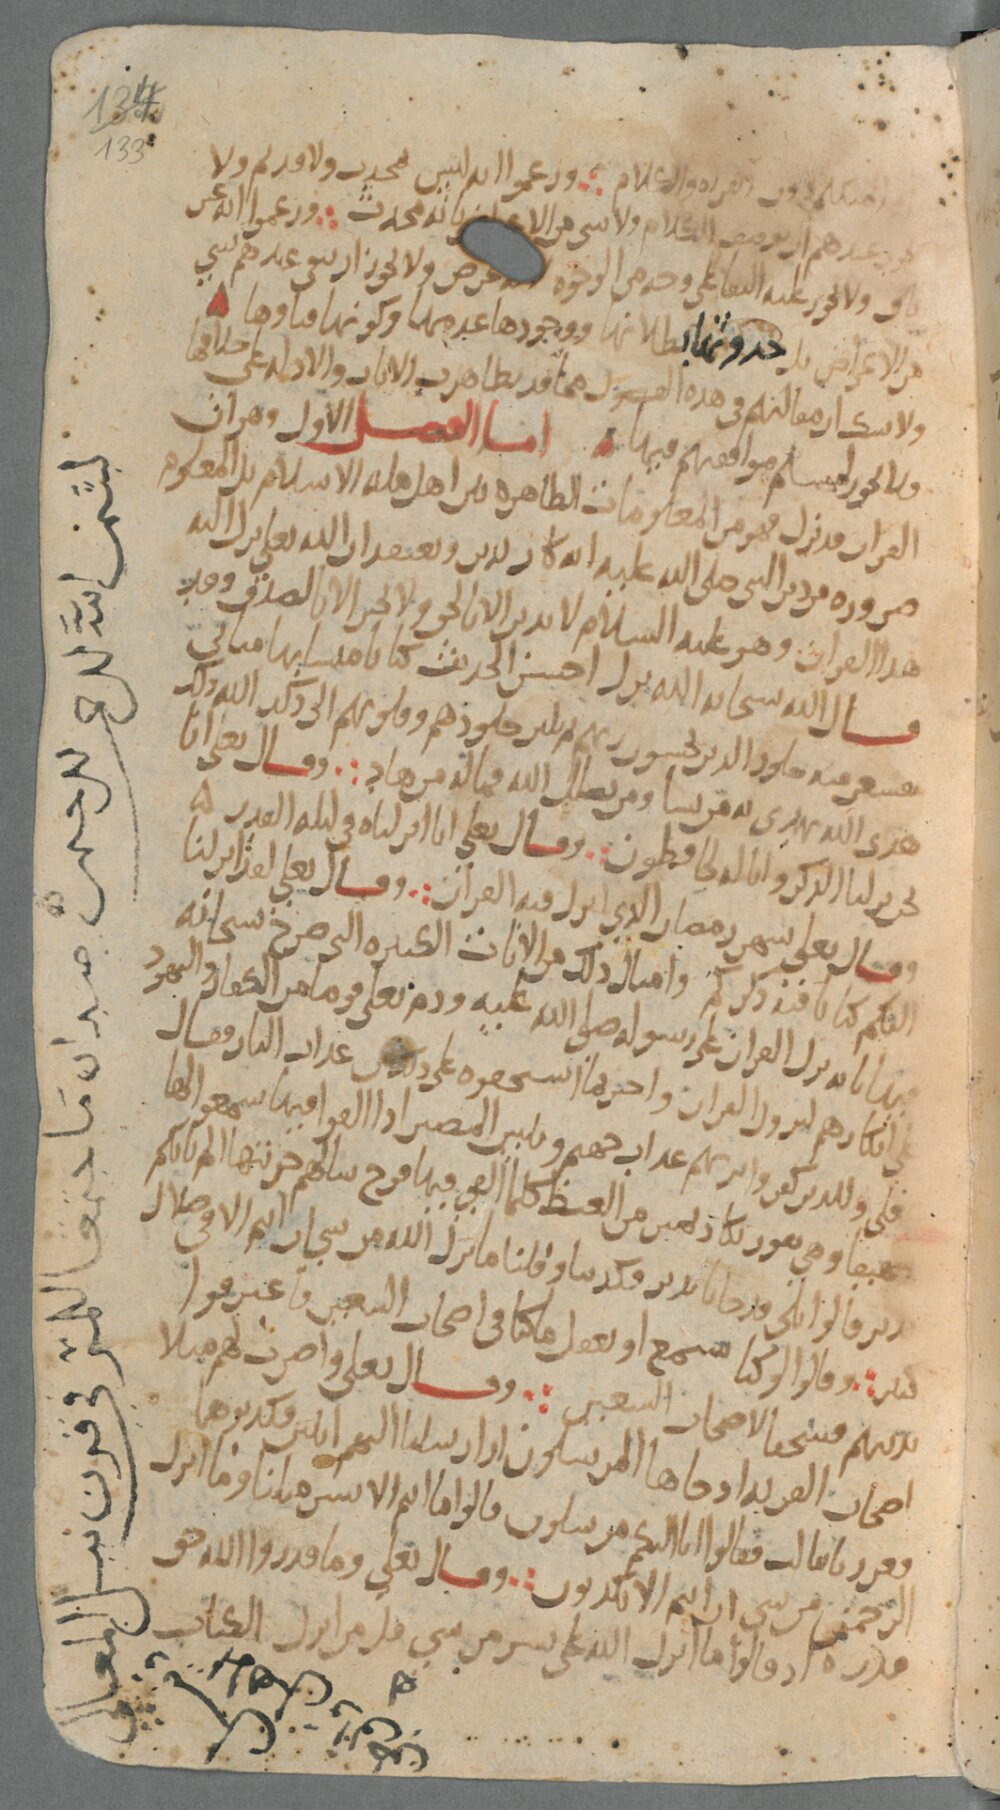 134
133
وزعموا انه ليس بمحدث ولا قديم ولا
عندهم ان يوصف الكلام ولا شي من الاعراض بانه محدث وزعموا انه غير
باق ولا يجوز عليه البقا على وجه من الوجوه لانه عرض ولا يجوز ان يبقى عندهم شي
من الاعراض بل حدوثها بطلانها ووجودها عدمها وكونها فناوها
ولا شك ان مقالتهم في هذه الفصول مما قد تظاهرت الايات والادلة على خلافها
ولا يجوز لمسلم موافقتهم فيها اما الفصل الاول وهو ان
القران قد نزل فهو من المعلومات الظاهرة بين اهل ملة الاسلام بل المعلوم
ضرورة من دين النبي صلى الله عليه انه كان يدين ويعتقد ان الله تعلى نزل اليه
هذا القران وهو عليه السلام لا يدين الا بالحق ولا يخبر الا بالصدق وقد
قال الله سبحانه الله نزل احسن الحديث كتابا متشابها مثاني
تقشعر منه جلود الذين يخشون ربهم ثم تلين جلودهم وقلوبهم الى ذكر الله ذلك
هدى الله يهدي به من يشا ومن يضلل الله فما له من هاد وقال تعلى انا
نحن نزلنا الذكر وانا له لحافظون وقال تعلى انا انزلناه في ليلة القدر
وقال تعلى شهر رمضان الذي انزل فيه القران وقال تعلى لقد انزلنا
اليكم كتابا فيه ذكركم وامثال ذلك من الايات الكثيرة التي صرح سبحانه
فيها بانه نزل القران على رسوله صلى الله عليه وذم تعلى قوما من الكفار واليهود
على انكارهم لنزول القران واخبر بما استحقوه على ذلك من عذاب النار وقال
تعلى وللذين كفروا بربهم عذاب جهنم وبئس المصير اذا القوا فيها سمعوا لها
شهيقا وهي تفور تكاد تميز من الغيظ كلما القي فيها فوج سالهم خزنتها الم ياتكم
نذير قالوا بلى قد جانا نذير فكذبنا وقلنا ما نزل الله من شي ان انتم الا في ضلال
كبير وقالوا لو كنا نسمع او نعقل ما كنا في اصحاب السعير فاعترفوا
بذنبهم فسحقا لاصحاب السعير وقال تعلى واضرب لهم مثلا
اصحاب القرية اذ جاها المرسلون اذ ارسلنا اليهم اثنين فكذبوهما
فعززنا بثالث فقالوا انا اليكم مرسلون قالوا ما انتم الا بشر مثلنا وما انزل
الرحمن من شي ان انتم الا تكذبون وقال تعلى وما قدروا الله حق
قدره اذ قالوا ما انزل الله على بشر من شي قل من انزل الكتاب